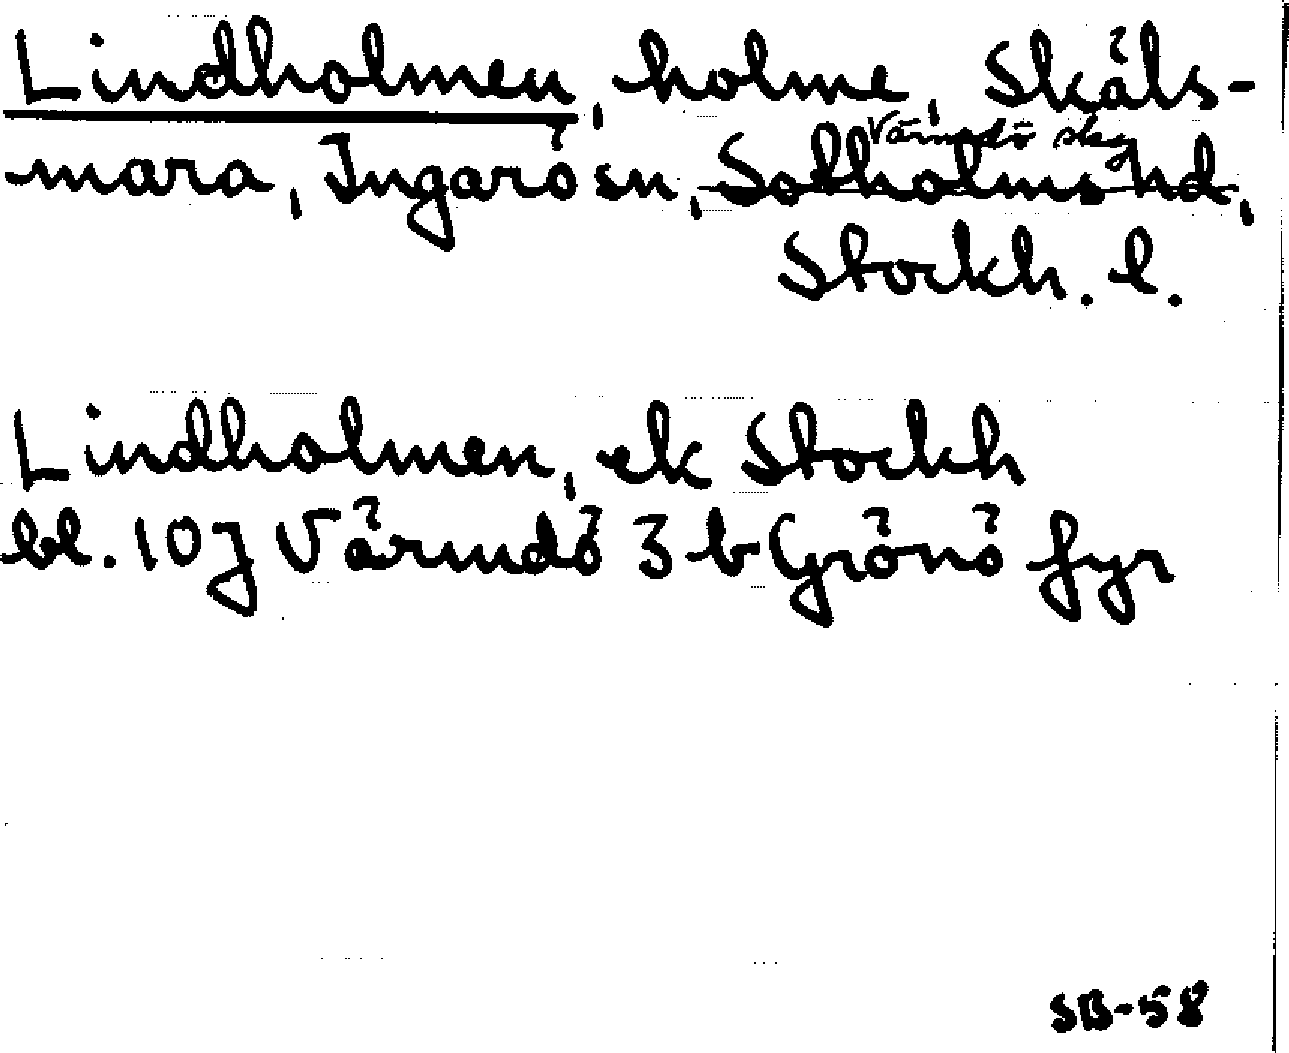 Lindholmen, holme, Skäls-
Värmdö skg
mara, Ingarö sn, Sotholms hd,
Stockh. l.
Lindholmen, ek Stockh
bl. 10J Värmdö 3 b Grönö fyr
SB-58